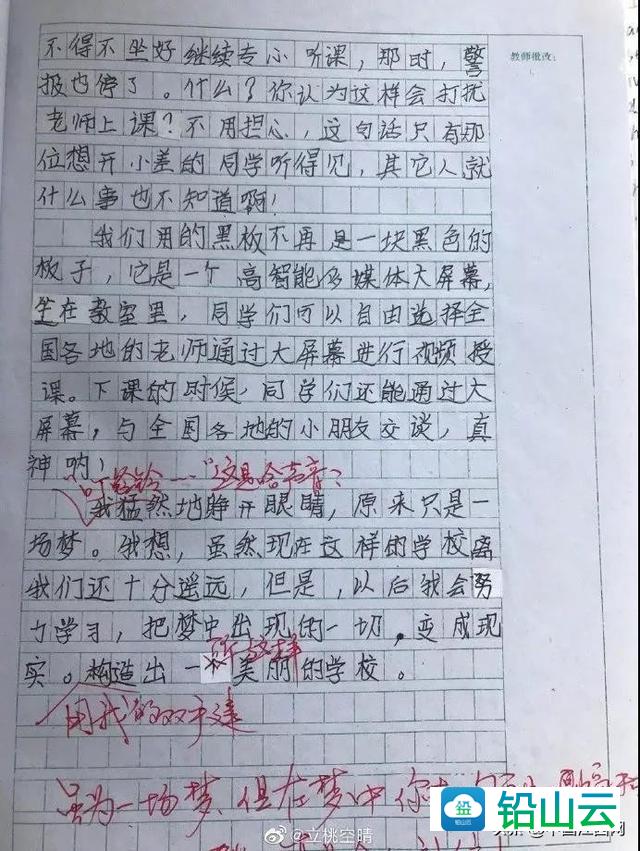 不得不坐好继续专心听课，那时，警
教师批改：
报也停了。什么？你认为这样会打扰
老师上课？不用担心，这句话只有那
位想开小差的同学听得见，其它人就
什么事也不知道啊！
我们用的黑板不再是一块黑色的
板子，它是一个高智能多媒体大屏幕，
坐在教室里，同学们可以自由选择全
国各地的老师通过大屏幕进行视频授
课。下课的时候，同学们还能通过大
屏幕，与全国各地的小朋友交谈，真
神哟！
叮铃铃——"这是啥声音？
我猛然地睁开眼睛，原来只是一
场梦。我想，虽然现在这样的学校离
我们还十分遥远，但是，以后我会努
力学习，把梦中出现的一切，变成现
所这样
实。构造出一 美丽的学校。
用我的双手建
虽为一场梦，但在梦中你
铅山云
铅山云
@立桃空晴